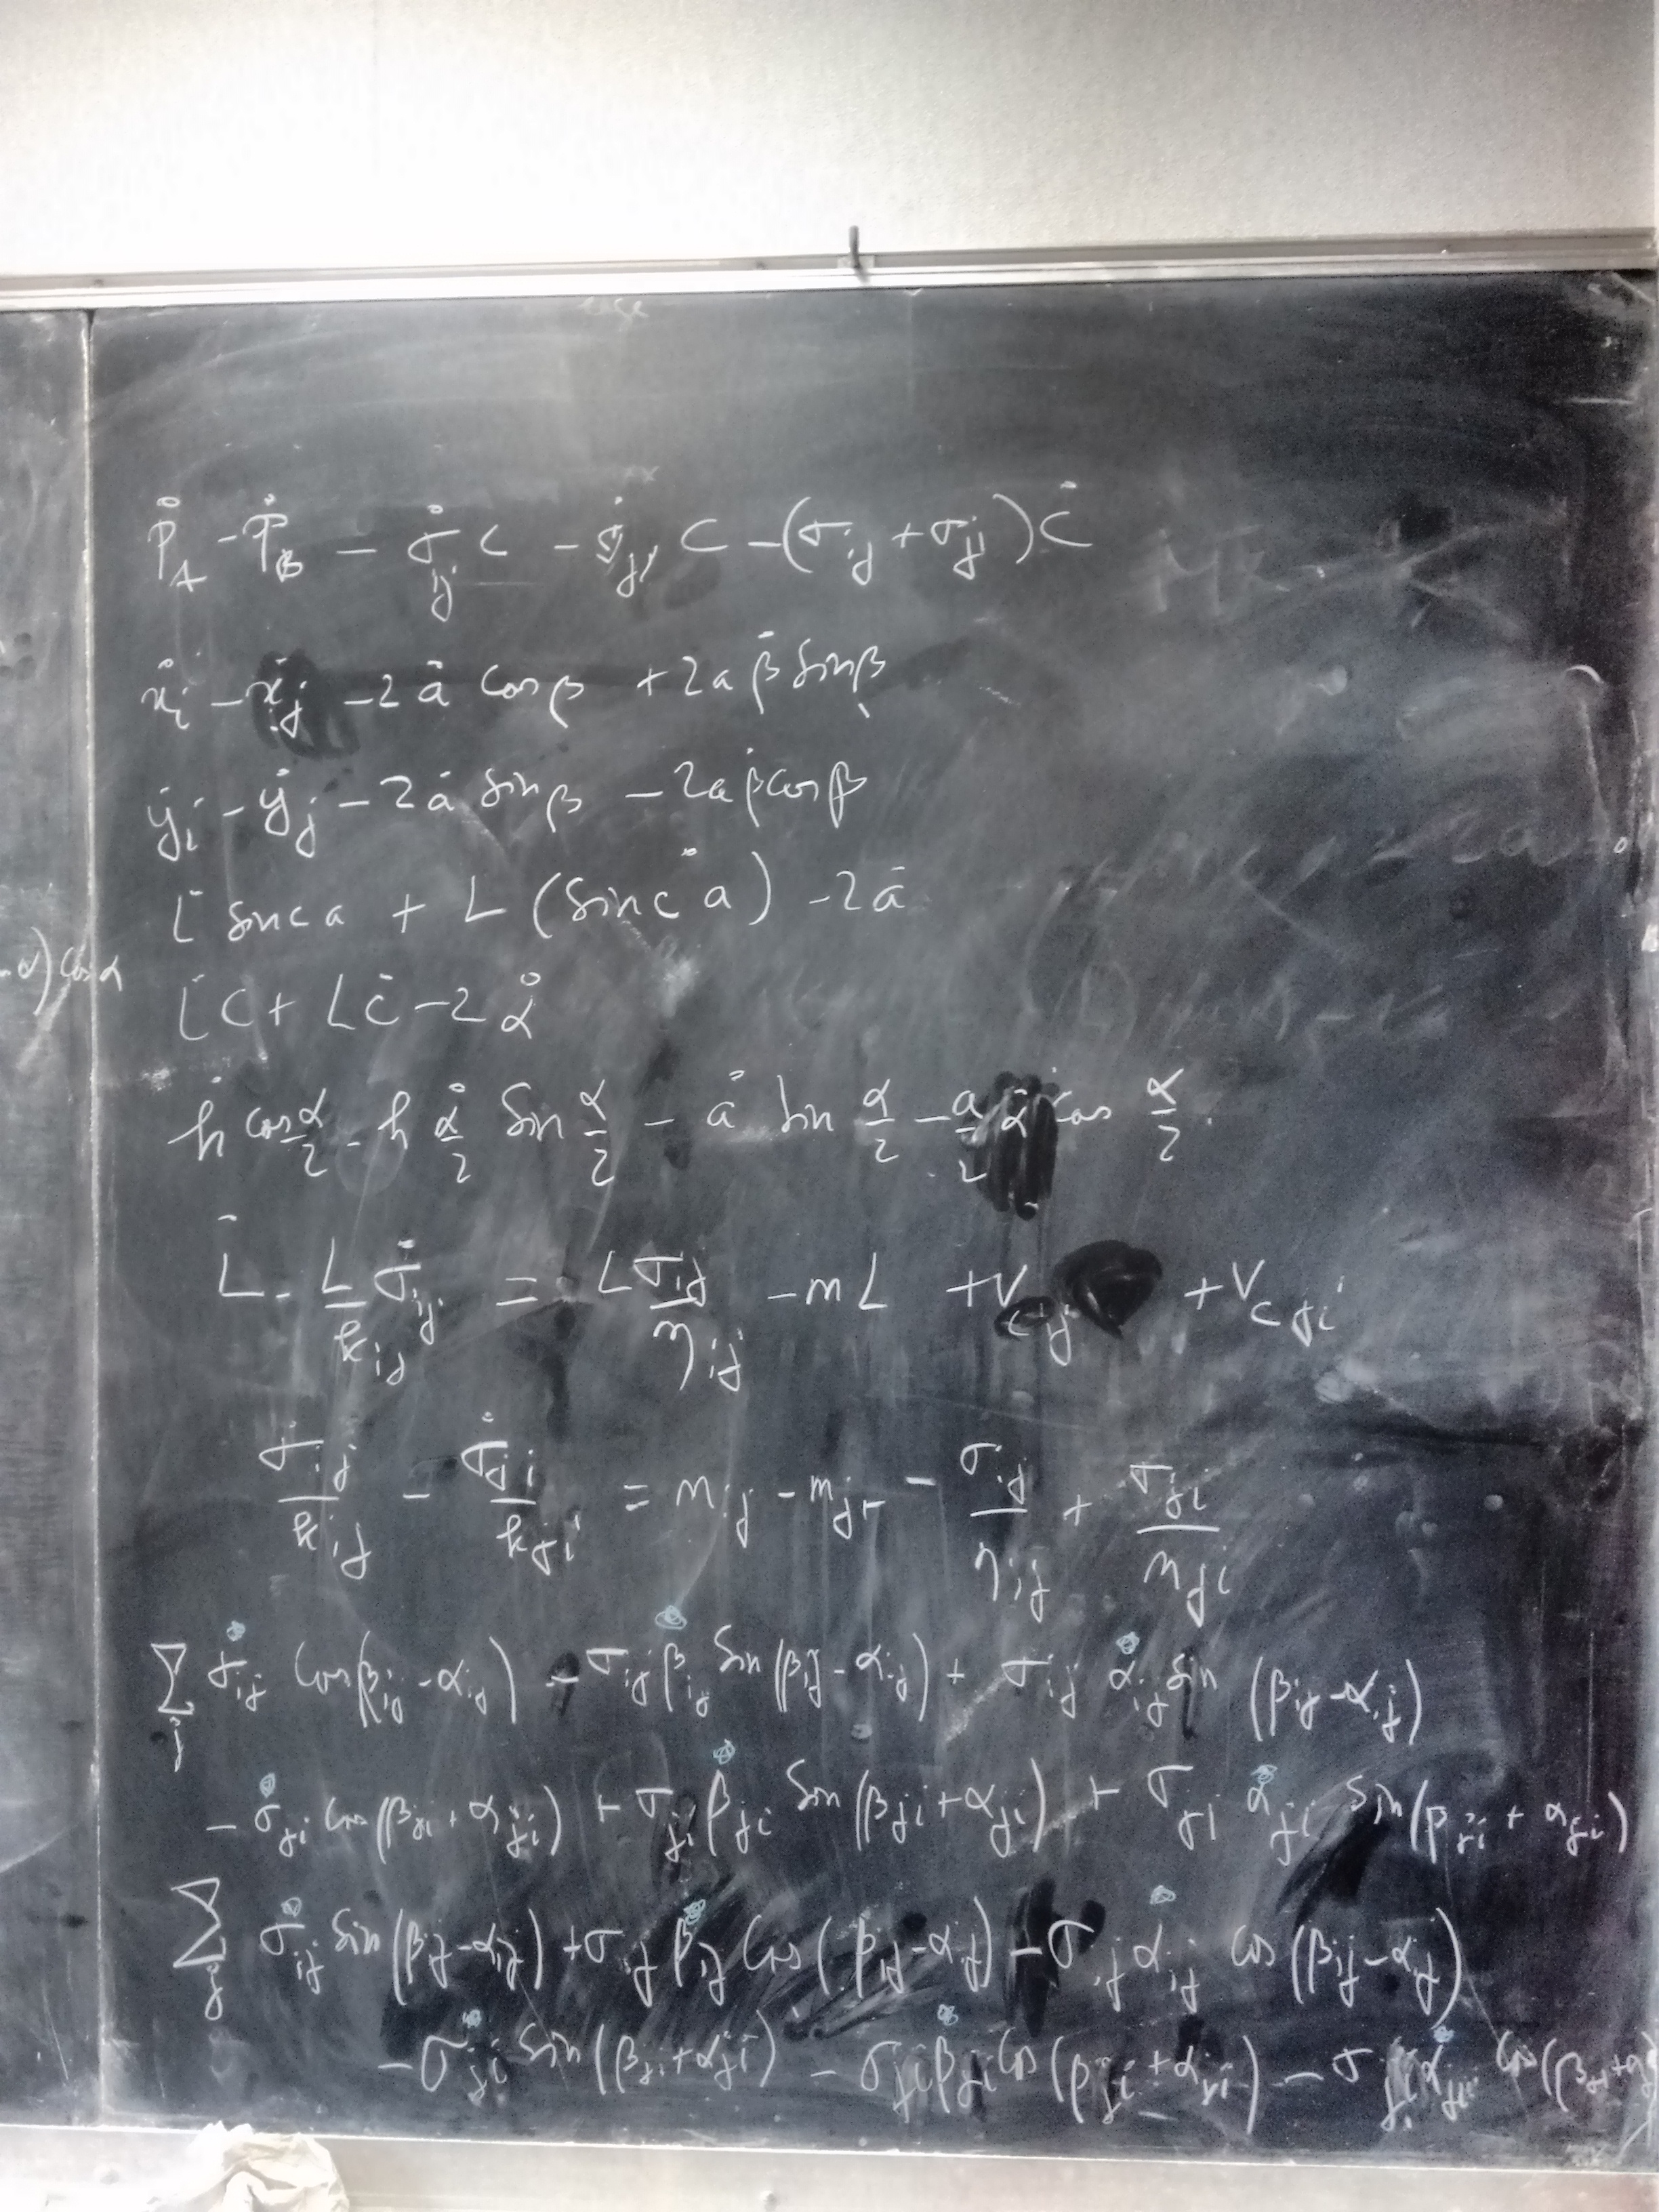 ṗ_A - ṗ_B - σ̇_ij C - σ̇_ji C - (σ_ij + σ_ji) Ċ
ẋ_i - ẋ_j - 2 ȧ cos β + 2 a β̇ sin β
ẏ_i - ẏ_j - 2 ȧ sin β - 2 a β̇ cos β
L̇ sinc a + L (sinc a)˙ - 2 ȧ
L̇ C + L Ċ - 2 α̇
ḣ cos α/2 - h α̇/2 sin α/2 - ȧ sin α/2 - a/2 α̇ cos α/2
L̇ - L/k_ij σ̇_ij = L σ_ij/η_ij - m L + V_cij + V_cji
σ̇_ij/k_ij - σ̇_ji/k_ji = m_ij - m_ji - σ_ij/η_ij + σ_ji/η_ji
∑_j σ̇_ij cos(β_ij - α_ij) - σ_ij β̇_ij sin(β_ij - α_ij) + σ_ij α̇_ij sin(β_ij - α_ij)
- σ̇_ji cos(β_ji + α_ji) + σ_ji β̇_ji sin(β_ji + α_ji) + σ_ji α̇_ji sin(β_ji + α_ji)
∑_j σ̇_ij sin(β_ij - α_ij) + σ_ij β̇_ij cos(β_ij - α_ij) - σ_ij α̇_ij cos(β_ij - α_ij)
- σ̇_ji sin(β_ji + α_ji) - σ_ji β̇_ji cos(β_ji + α_ji) - σ_ji α̇_ji cos(β_ji + α
) cos α